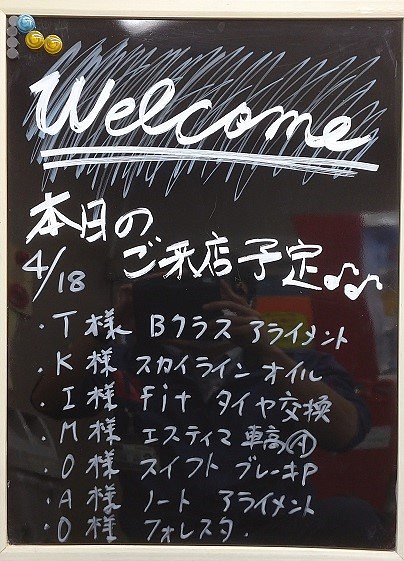 Welcome
本日の
4/18 ご来店予定♪♪
・T様 Bクラス アライメント
・K様 スカイライン オイル
・I様 Fit タイヤ交換
・M様 エスティマ 車高Ⓐ
・O様 スイフト ブレーキP
・A様 ノート アライメント
・O様 フォレスタ.